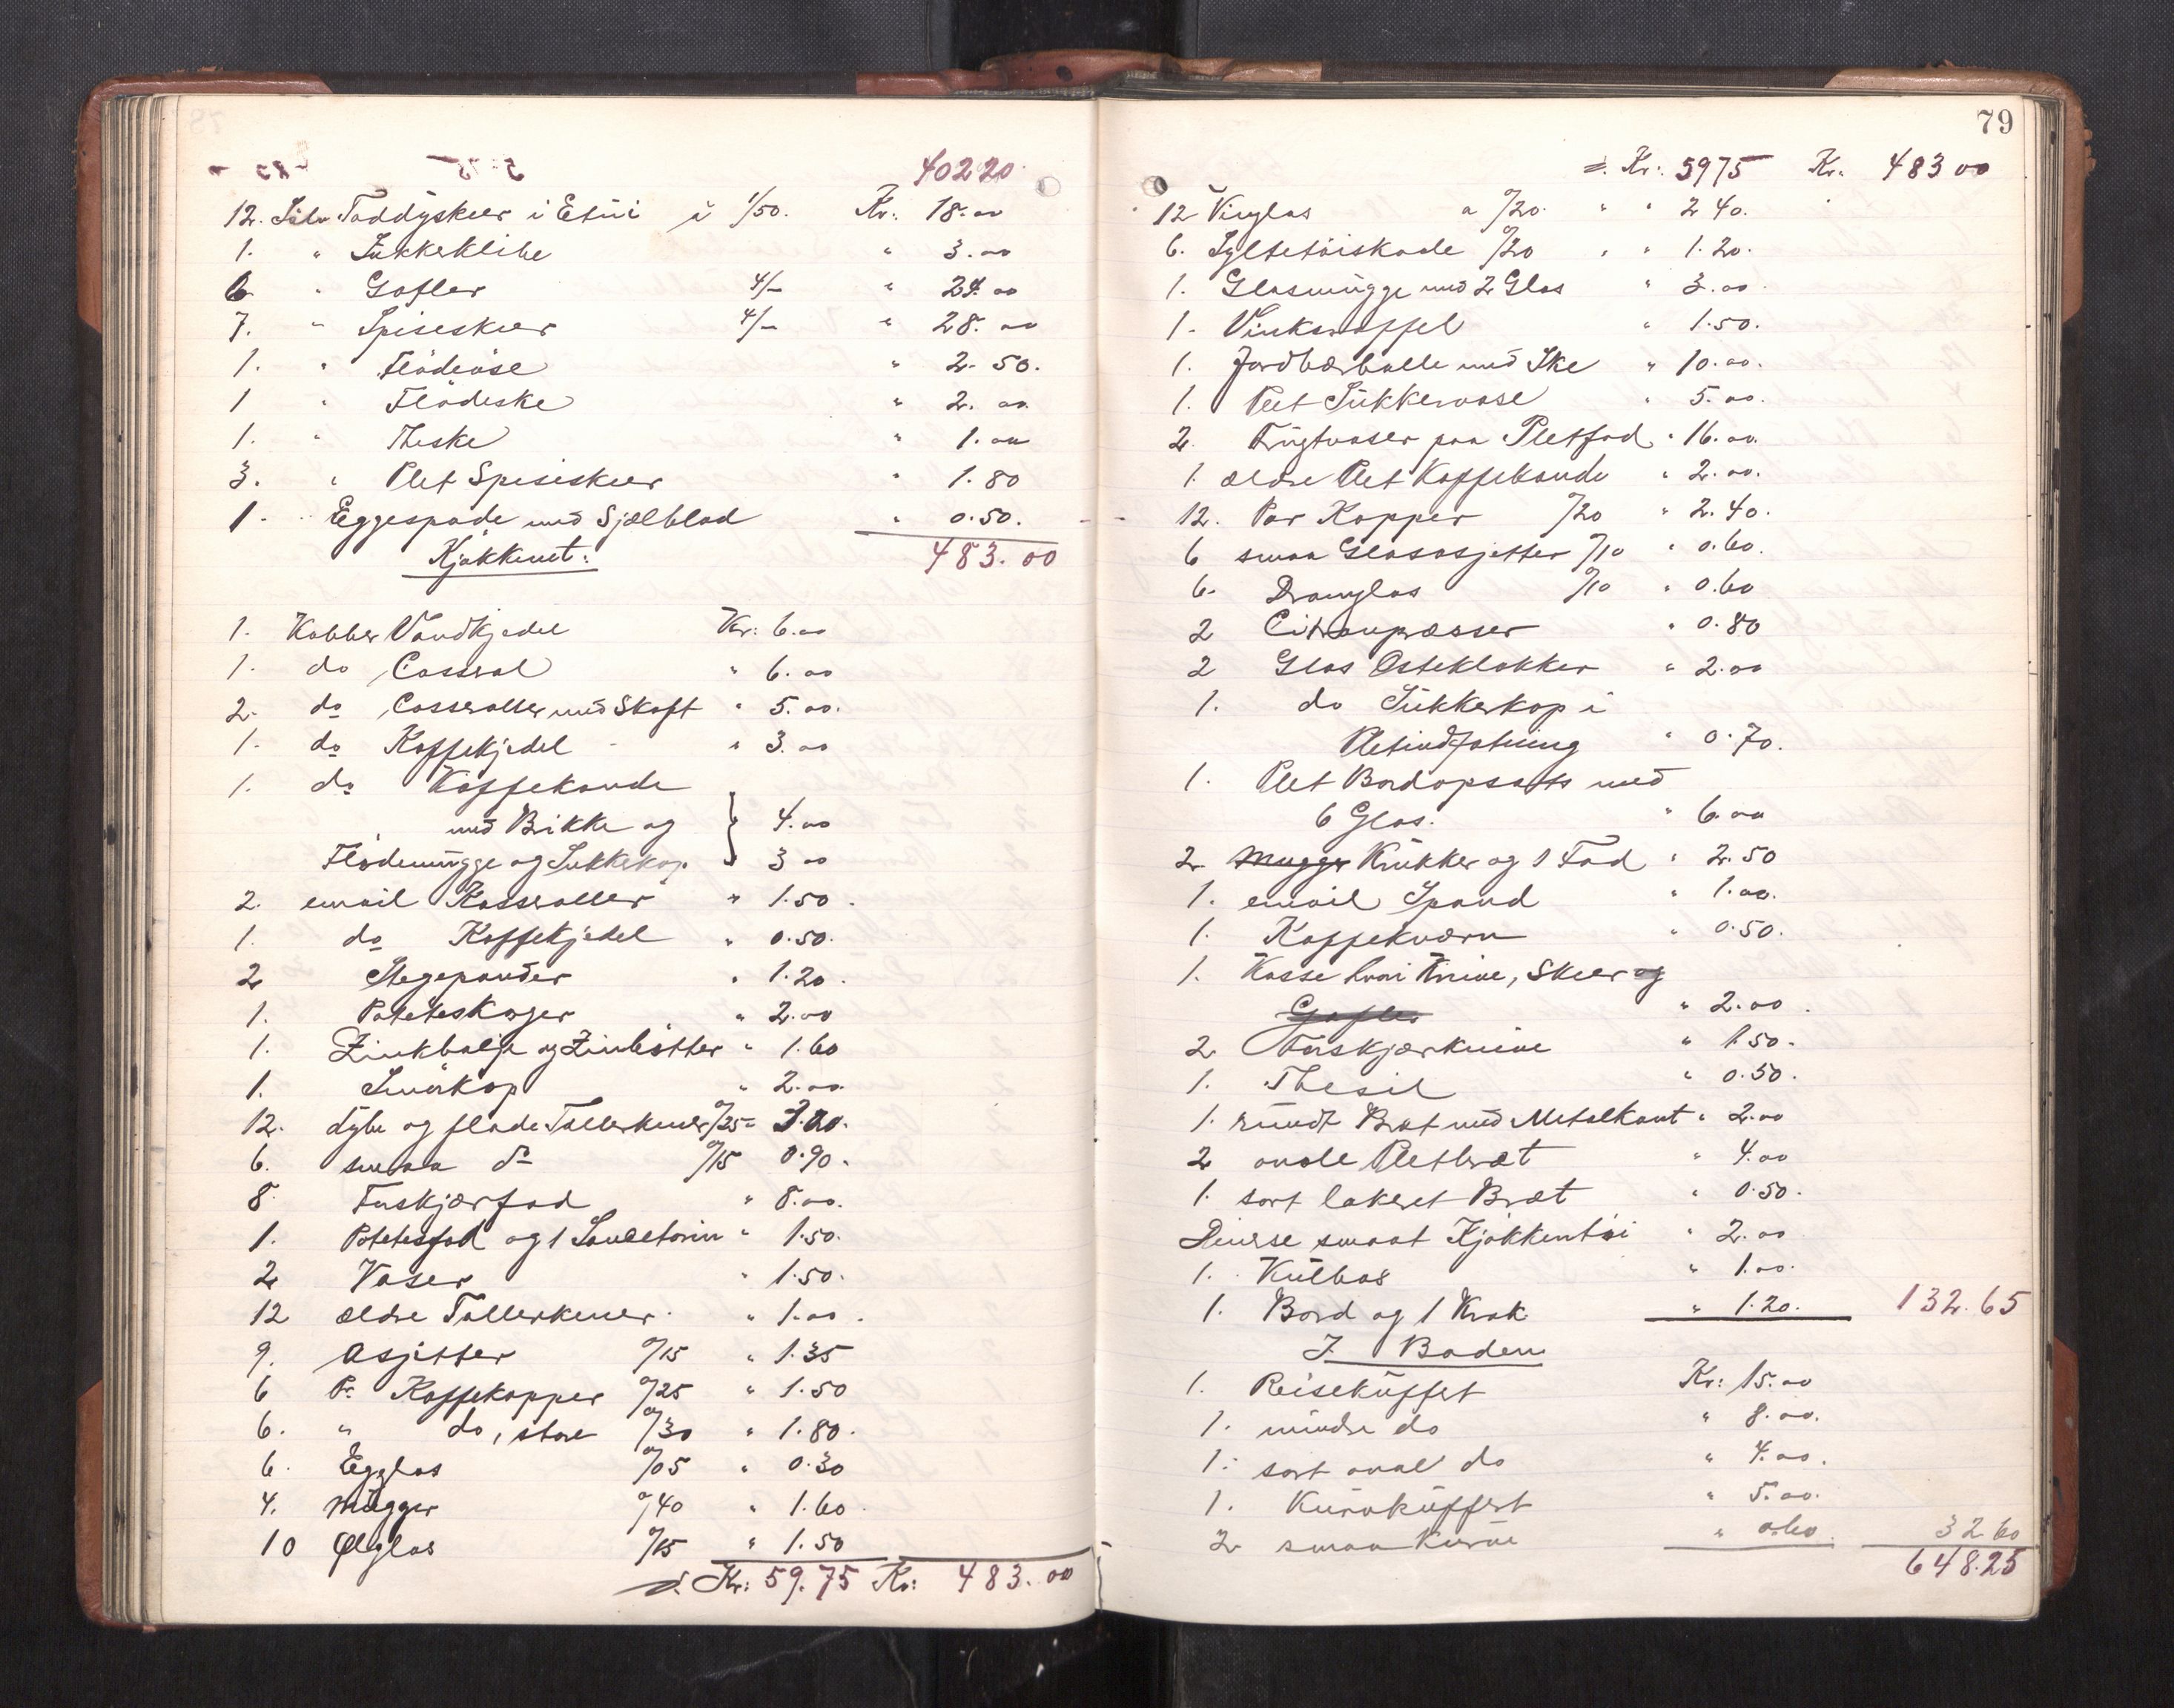 40220
12. Sølv Toddyskeer i Etui à 1/50. Kr: 18.00
1. " Sukkerklibe " 3.00
6 " Gafler 4/– " 24.00
7. " Spiseskeer 4/– " 28.00
1. " Flødeøse " 2.50.
1 " Flödeske " 2.00
1. " Theske " 1.00
3. " Plet Spiseskeer " 1.80
1. Eggespade med Sjælblad " 0.50.
Kjøkkenet: 483.00
1. Kobber Vandkjedel Kr: 6.00
1. do Casserol " 6.00
2. do Casseroller med Skaft " 5.00.
1. do Kaffekjedel " 3.00
1. do Kaffekande
med Brikke og } 4.00
Flødemugge og Sukkekop. 3 00
2. email Kasseroller " 1.50.
1. do Kaffekjedel " 0.50.
2 Stegepander " 1.20.
1. Poteteskoger " 2.00
1. Zinkbalje og Zinkbøtter " 1.60
1. Smørkop " 2.00.
12. dybe og flade Tallerkener 0/25 = 3.00.
6. smaa do 0/15 0.90.
8 Forskjærfad " 8.00.
1. Potetesfad og 1 Sauceterin " 1.50.
2 Vaser " 1.50.
12 ældre Tallerkener " 1.00.
9. Asjetter 0/15 " 1.35
6 Pr Kaffekopper 0/25 " 1.50
6. " do, store 0/30 " 1.80.
6. Eggglas 0/05 " 0.30
4. Mugger 0/40 " 1.60.
10 Ølglas 0/15 " 1.50
Kr: 59.75 Kr: 483.00
79
Kr: 5975 Kr. 483 00
12 Vinglas a 0/20. " " 2 40.
6. Syltetøiskaale 0/20 " " 1.20.
1. Glasmugge med 2 Glas " 3.00
1. Vinkaraffel " 1.50.
1. Jordbærbolle med Ske " 10.00.
1. Plet Sukkervase " 5.00.
2. Frugtvaser paa Pletfod " 16.00.
1. ældre Plet Kaffekande " 2.00.
12. Par Kopper 0/20 " 2.40.
6 smaa Glasasjetter 0/10 " 0.60.
6. Dramglas 0/10 " 0.60
2 Citronpræsser " 0.80
2 Glas Osteklokker " 2.00
1. do Sukkerkop i
Pletindfatning " 0.70.
1. Plet Bordopsats med
6 Glas. " 6.00
2. Mugger Krukker og 1 Fad " 2.50
1. email Spand " 1.00.
1. Kaffekværn " 0.50.
1. Kasse hvori Knive, Skeer og
Gafler " 2.00.
2. Forskjærknive " 1.50.
1. Thesil " 0.50.
1. rundt Bræt med Metalkant " 2.00
2 ovale Pletbræt " 4.00
1. sort lakeret Bræt " 0.50.
Diverse smaat Kjøkkentøi " 2.00
1. Kulbox " 1.00.
1. Bord og 1 Krak " 1.20. 132.65
I Boden
1. Reisekuffert Kr: 15.00
1. mindre do " 8.00.
1. sort oval do " 4.00.
1. Kurvkuffert " 5.00.
2 smaa Kurve " 0.60. 32 60
648.25